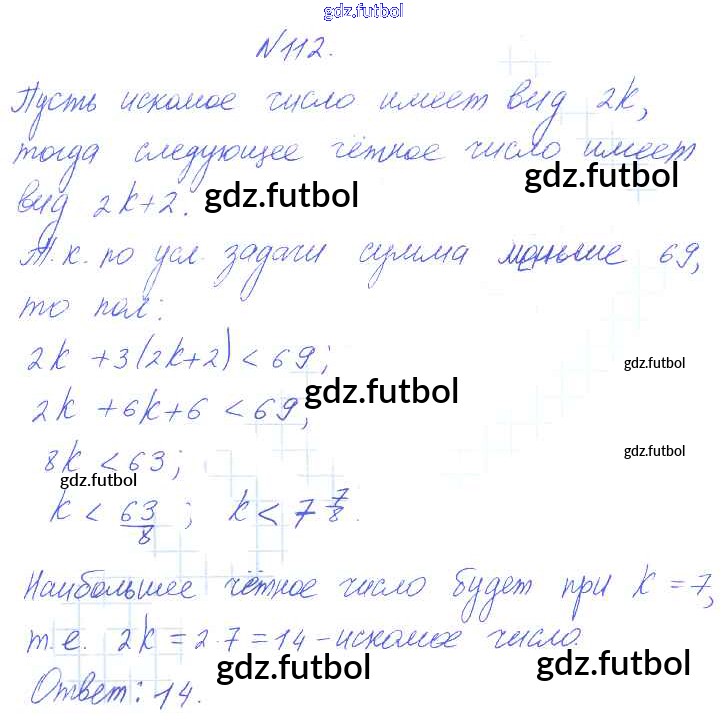 gdz.futbol
N112.
Пусть искомое число имеет вид 2k,
тогда следующее чётное число имеет
gdz.futbol
вид 2k+2. gdz.futbol
Т.к. по усл. задачи сумма меньше 69,
то пол:
2k +3(2k+2) < 69;
gdz.futbol
2k +6k+6 < 69;
gdz.futbol
8k < 63;
gdz.futbol
gdz.futbol
k < 63/8 ; k < 7 7/8.
Наибольшее чётное число будет при k = 7,
т.е. 2k = 2·7 = 14 - искомое число.
gdz.futbol gdz.futbol
Ответ: 14.